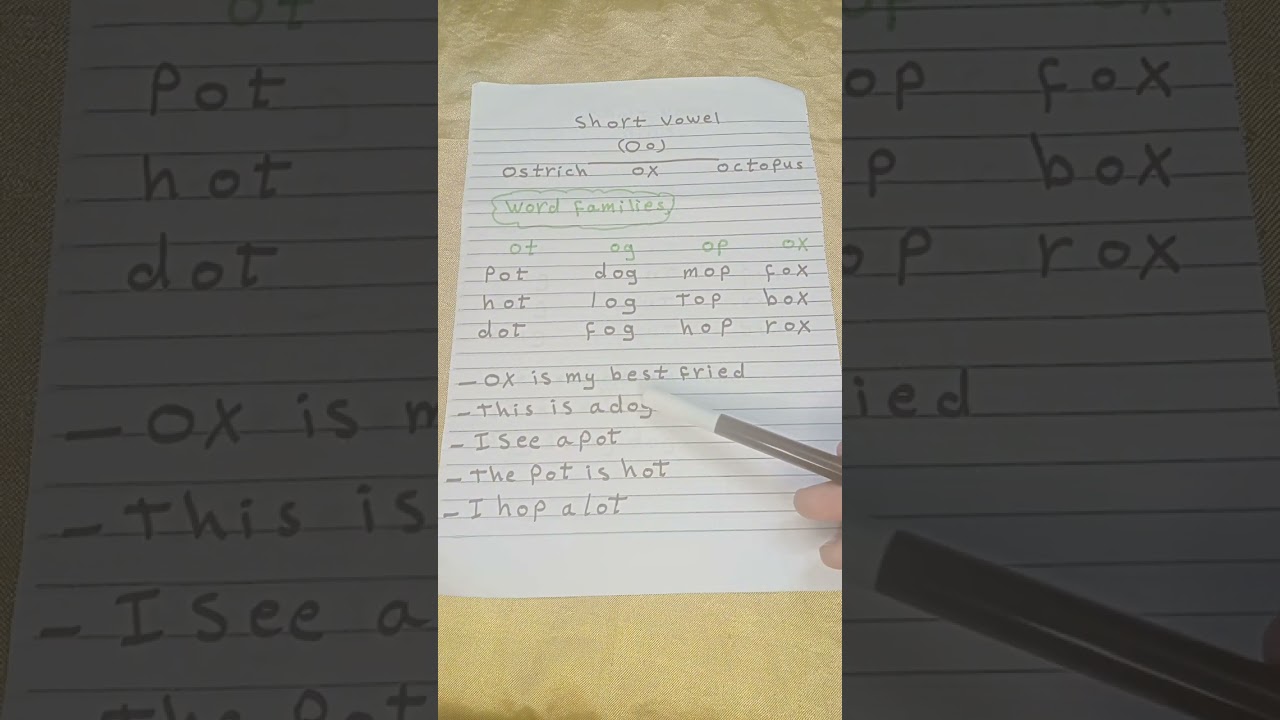 Short Vowel
(Oo)
ostrich ox octopus
Word Families
ot og op ox
Pot dog mop fox
hot log Top box
dot fog hop rox
- ox is my best fried
- This is a dog
- I see a pot
- The pot is hot
- I hop a lot